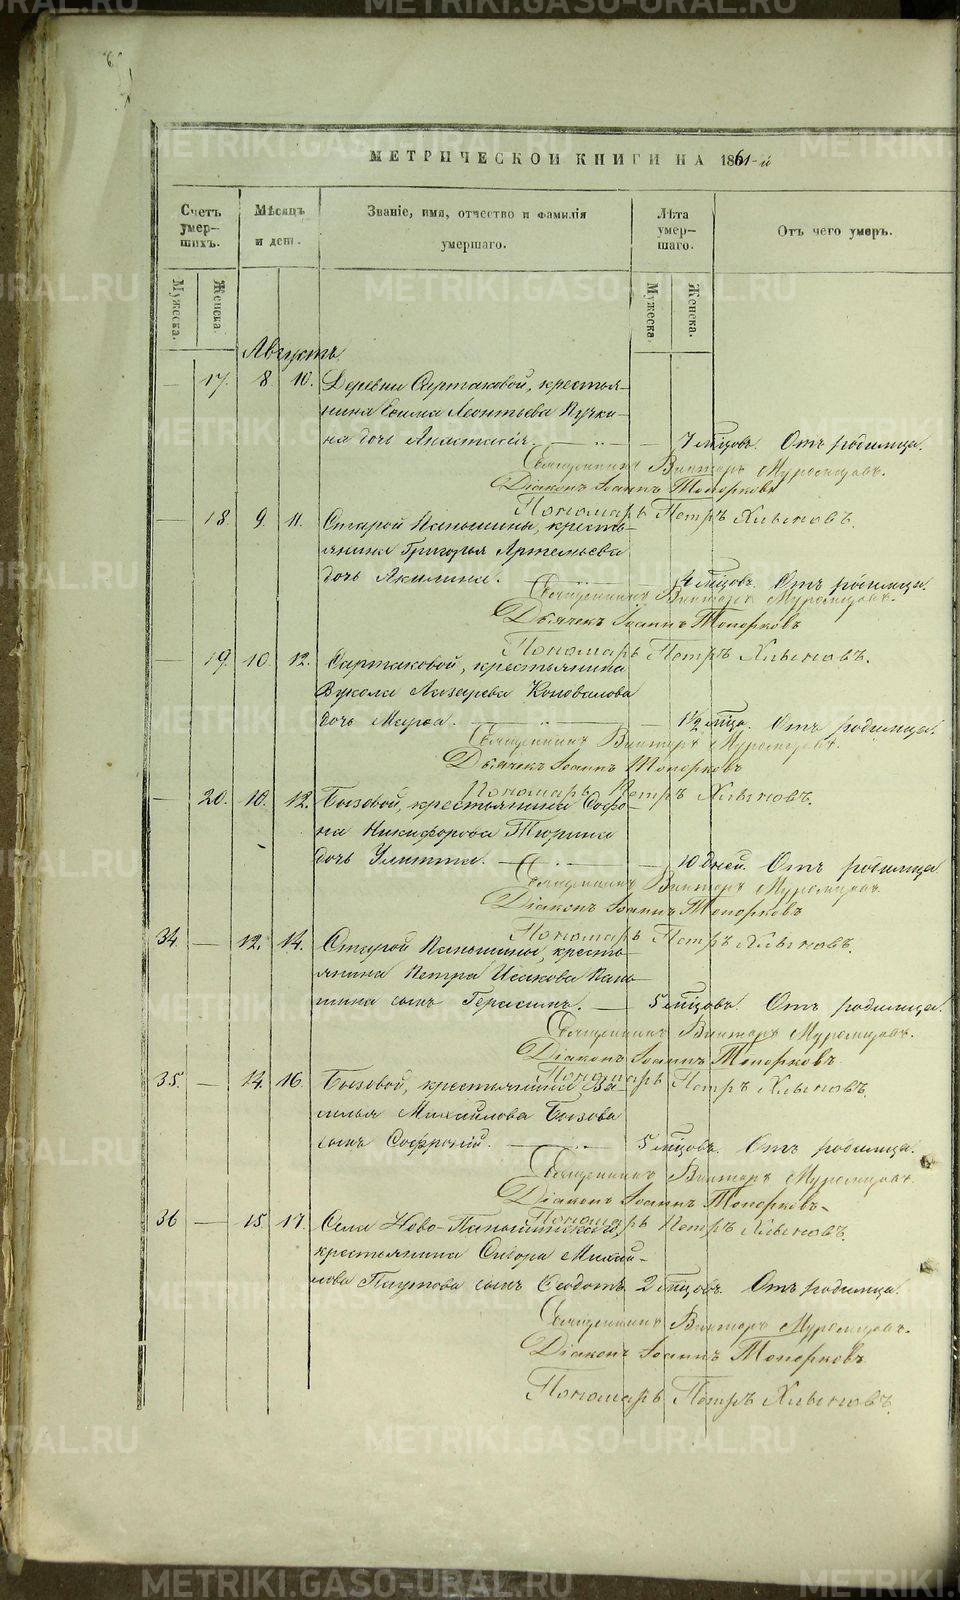 METRIKI.GASO-URAL.RU
МЕТРИЧЕСКОЙ КНИГИ НА 1861-й
Счетъ умер-шихъ.
Мѣсяцъ и день.
Званіе, имя, отчество и фамилія умершаго.
Лѣта умер-шаго.
Отъ чего умеръ.
Мужеска. Женска.
Мужеска. Женска.
Августъ
— 17. 8. 10. Деревни Сарtаковой, крестья-
нина Леонтьева Пучки-
на дочь Анастасія. — 7 мцовъ. Отъ родимца.
Священникъ Викторъ Муромцовъ.
Діаконъ Іоаннъ Топорковъ
Пономарь Петръ Хлыновъ.
— 18. 9. 11. Старой Паньшины, кресть-
янина Григорья Артемьева
дочь Акилина. — 4 мцовъ. Отъ родимца.
Священникъ Викторъ Муромцовъ.
Дьячекъ Іоаннъ Топорковъ
Пономарь Петръ Хлыновъ.
— 19. 10. 12. Сартаковой, крестьянина
Вукола Лазарева Коновалова
дочь Марѳа. — 1½ мца. Отъ родимца.
Священникъ Викторъ Муромцовъ.
Дьячекъ Іоаннъ Топорковъ
Пономарь Петръ Хлыновъ.
— 20. 10. 12. Бызовой, крестьянина Софо-
на Никифорова Тюрина
дочь Улитта. — 10 дней. Отъ родимца.
Священникъ Викторъ Муромцовъ.
Діаконъ Іоаннъ Топорковъ
Пономарь Петръ Хлыновъ.
34 — 12. 14. Старой Паньшины, кресть-
янина Петра Исакова Пань-
шина сынъ Герасимъ. — 5 мцовъ. Отъ родимца.
Священникъ Викторъ Муромцовъ.
Діаконъ Іоаннъ Топорковъ
Пономарь Петръ Хлыновъ.
35. — 14. 16. Бызовой, крестьянина Ва-
силья Михайлова Бызова
сынъ Софроній. — 5 мцовъ. Отъ родимца.
Священникъ Викторъ Муромцовъ.
Діаконъ Іоаннъ Топорковъ
Пономарь Петръ Хлыновъ.
36 — 15. 17. Села Ново-Паньшинскаго,
крестьянина Сидора Михай-
лова Паутова сынъ Ѳеодотъ 2 мцовъ. Отъ родимца.
Священникъ Викторъ Муромцовъ.
Діаконъ Іоаннъ Топорковъ
Пономарь Петръ Хлыновъ.